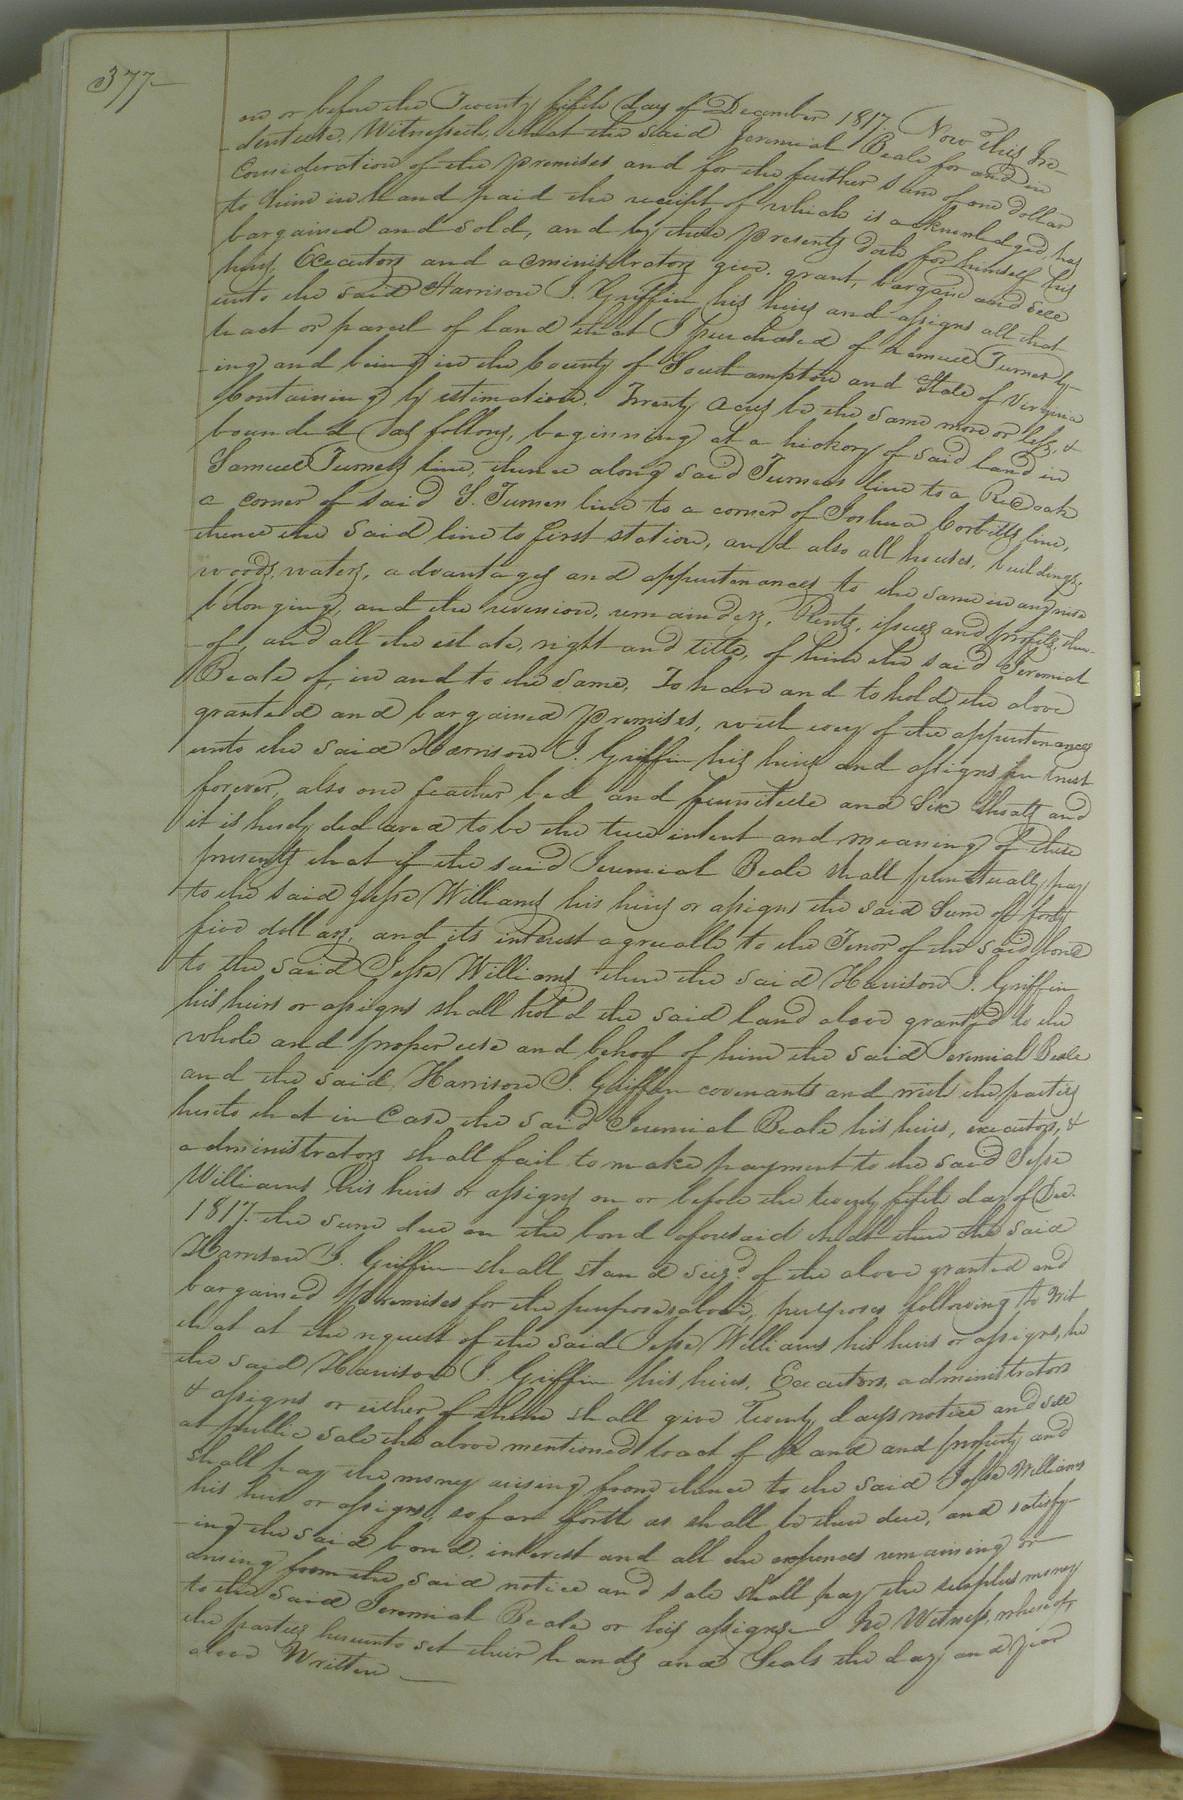 377
on or before the Twenty fifth day of December 1817. Now this In-
-denture, Witnesseth, that the said Jeremiah Beale for and in
Consideration of the premises and for the further sum of one dollar
to him in hand paid the receipt of which is acknowledged, has
bargained and sold, and by these presents doth for himself his
heirs, Executors and administrators give, grant, bargain and sell
unto the said Harrison J. Griffin his heirs and assigns all that
tract or parcel of land that I purchased of Samuel Turner ly-
-ing and being in the County of Southampton and State of Virginia
Containing by estimation, Twenty acres be the same more or less, &
bounded as follows, beginning at a hickory of said land in
Samuel Turners line, thence along said Turners line to a Red oak
a corner of said S. Turner line to a corner of Joshua Corbitts line,
thence the said line to first station, and also all houses, buildings,
woods, waters, advantages and appurtenances to the same in any wise
belonging, and the reversion, remainders, Rents, issues and profits, there-
-of, and all the estate, right and title, of him the said Jeremiah
Beale of, in and to the same, To have and to hold, the above
granted and bargained premises, with every of the appurtenances
unto the said Harrison J. Griffin his heirs and assigns in trust
forever, also one feather bed and furniture and Six Shoats and
it is hereby declared to be the true intent and meaning of these
presents that if the said Jeremiah Beale shall punctually pay
to the said Jesse Williams his heirs or assigns the said Sum of forty
five dollars, and its interest agreeable to the Tenor of the said bond
to the said Jesse Williams then the said Harrison J. Griffin
his heirs or assigns shall hold the said land above granted to the
whole and proper use and behoof of him the said Jeremiah Beale
and the said Harrison J. Griffin covenants and with the parties
hereto that in Case the said Jeremiah Beale his heirs, executors, &
administrators shall fail to make payment to the said Jesse
Williams his heirs or assigns on or before the twenty fifth day of Dec.
1817. the sum due on the bond aforesaid that then the said
Harrison J. Griffin shall stand seizd. of the above granted and
bargained premises for the purposes above, purposes following, to wit
that at the request of the said Jesse Williams his heirs or assigns, he
the said Harrison J. Griffin his heirs, Executors, administrators
& assigns or either of them shall give Twenty days notice and sell
at public sale the above mentioned tract of land and property and
shall pay the money arising from thence to the said Jesse Williams
his heirs or assigns, so far forth as shall be then due, and satisfy-
-ing the said bond, interest and all the expenses remaining or
arising from the said notice and sale shall pay the surplus money
to the said Jeremiah Beale or his assigns— In Witness, whereof,
the parties hereunto set their hands and Seals the day and year
above Written —